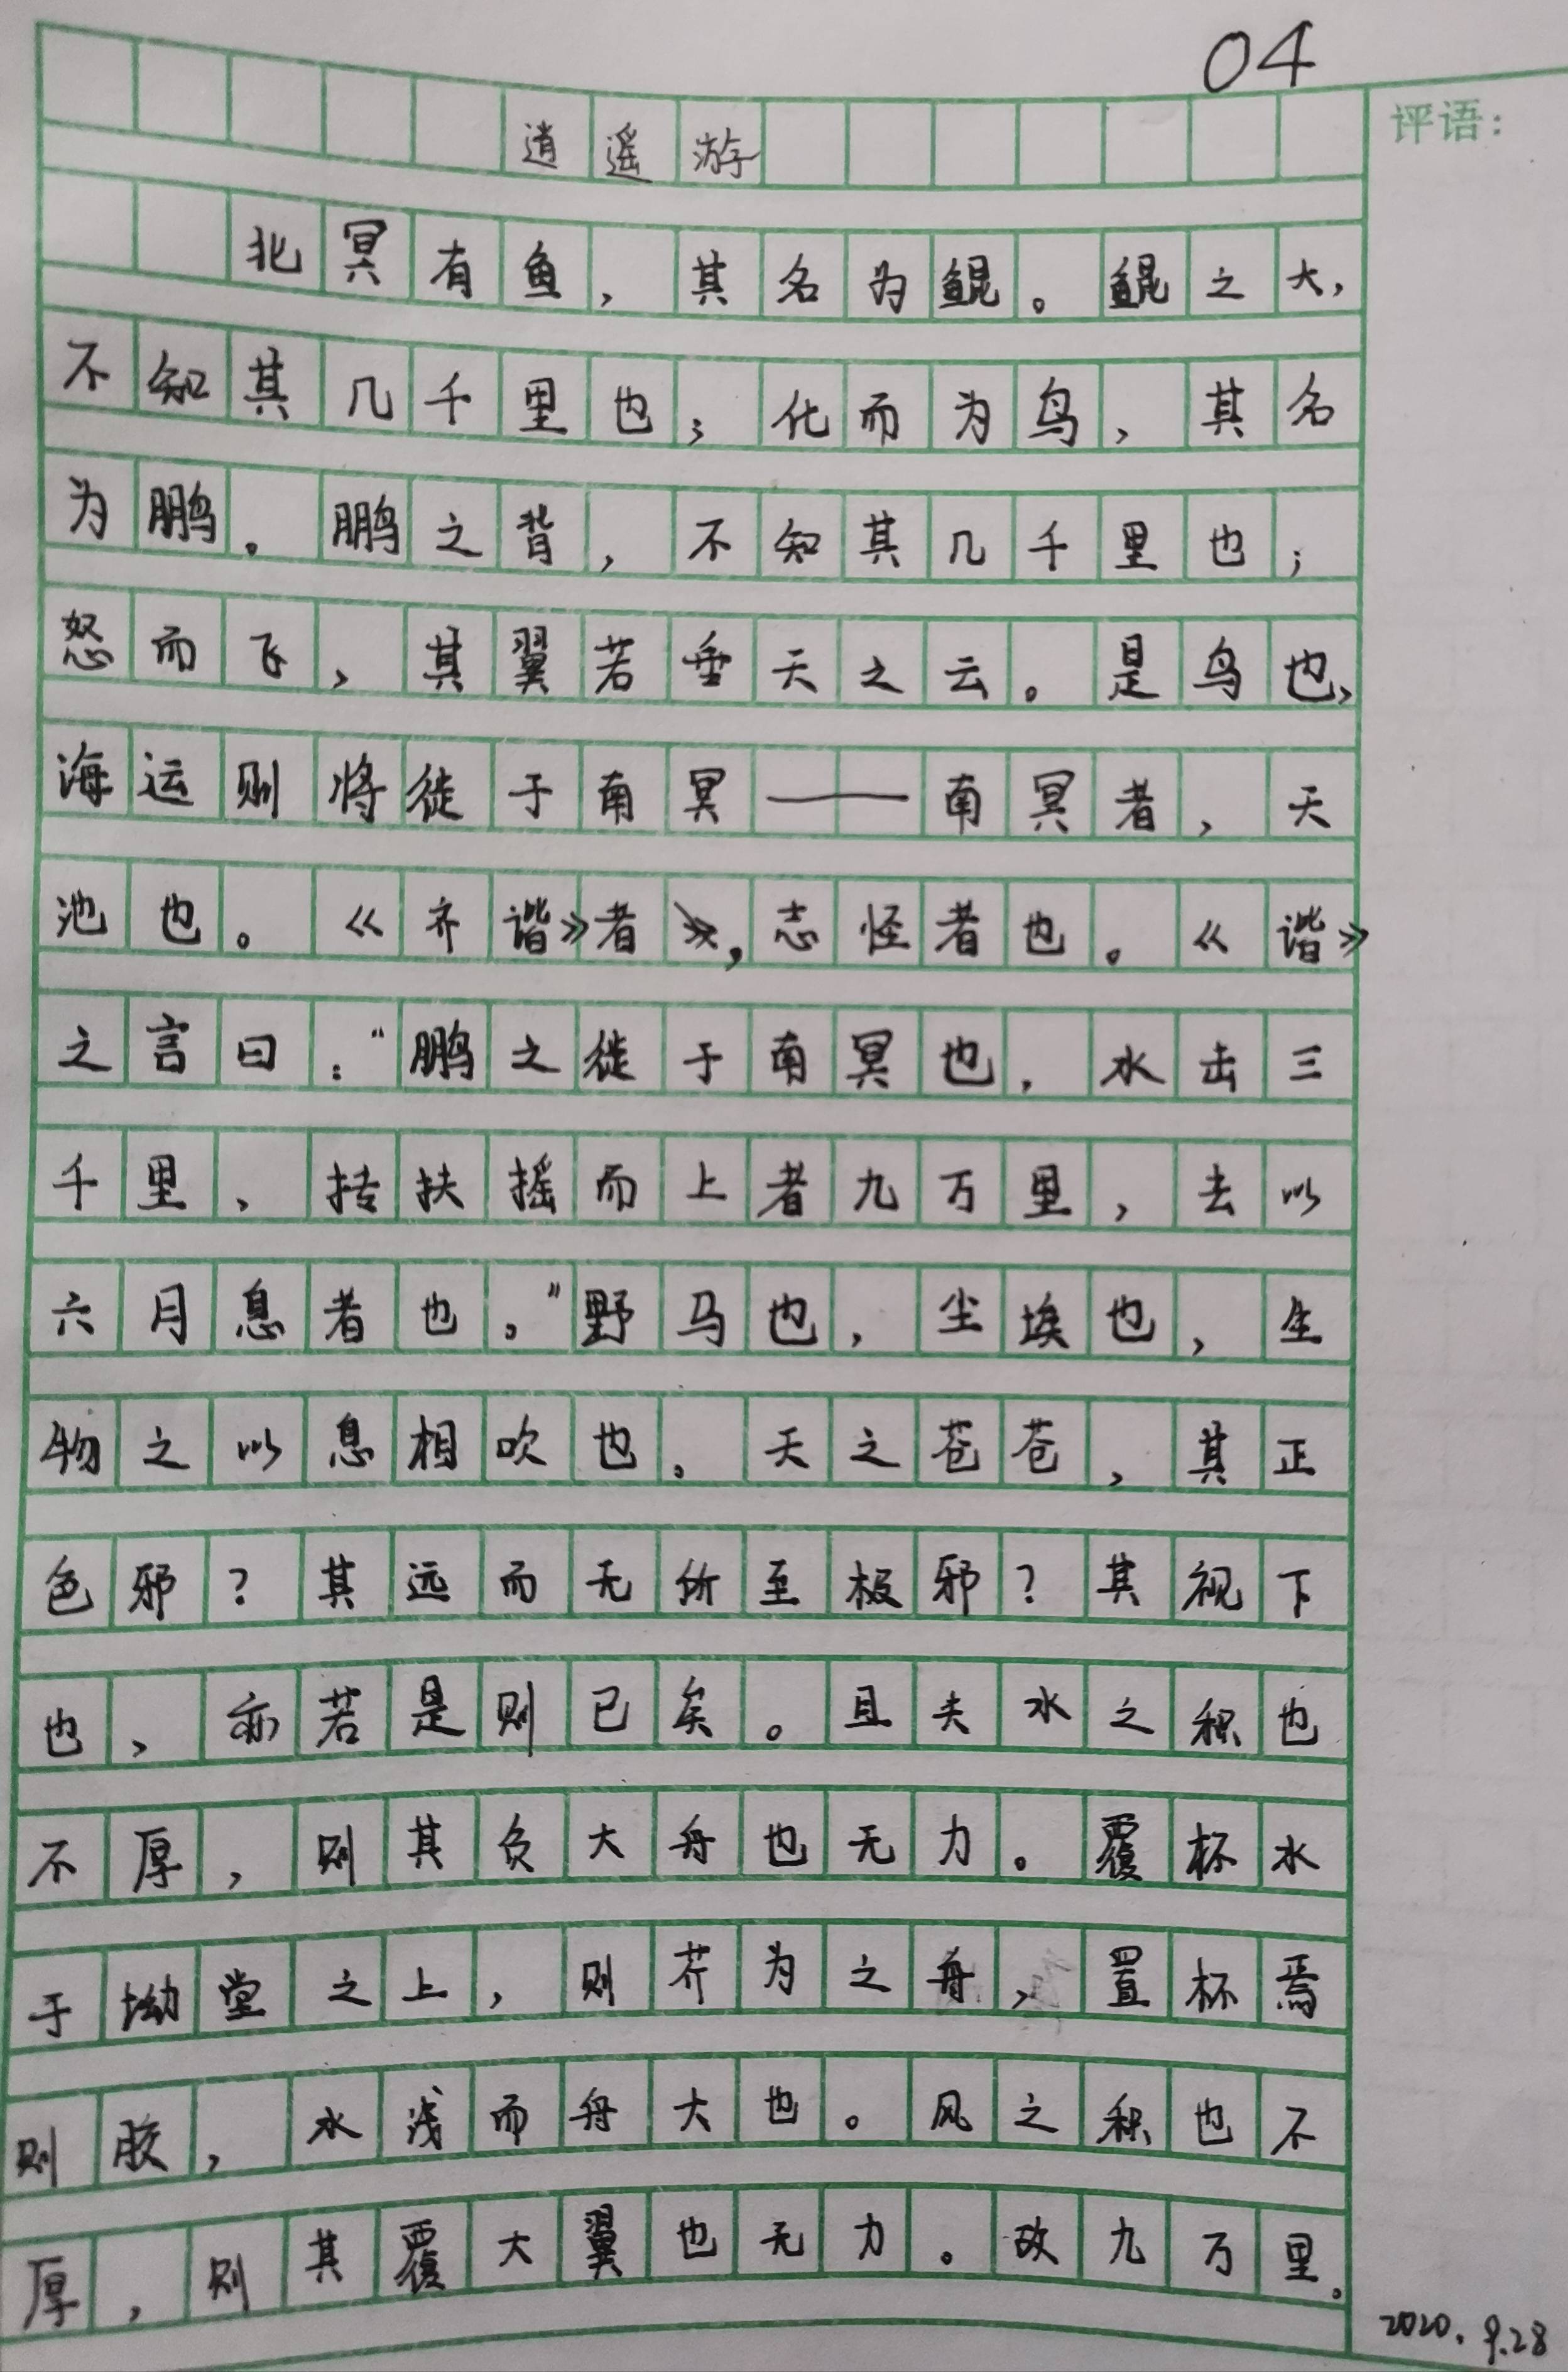 04
评语:
逍遥游
北冥有鱼,其名为鲲。鲲之大,
不知其几千里也;化而为鸟,其名
为鹏。鹏之背,不知其几千里也;
怒而飞,其翼若垂天之云。是鸟也,
海运则将徙于南冥——南冥者,天
池也。《齐谐》者,志怪者也。《谐》
之言曰:“鹏之徙于南冥也,水击三
千里,抟扶摇而上者九万里,去以
六月息者也。”野马也,尘埃也,生
物之以息相吹也。天之苍苍,其正
色邪?其远而无所至极邪?其视下
也,亦若是则已矣。且夫水之积也
不厚,则其负大舟也无力。覆杯水
于坳堂之上,则芥为之舟,置杯焉
则胶,水浅而舟大也。风之积也不
厚,则其覆大翼也无力。故九万里。
2020.9.28